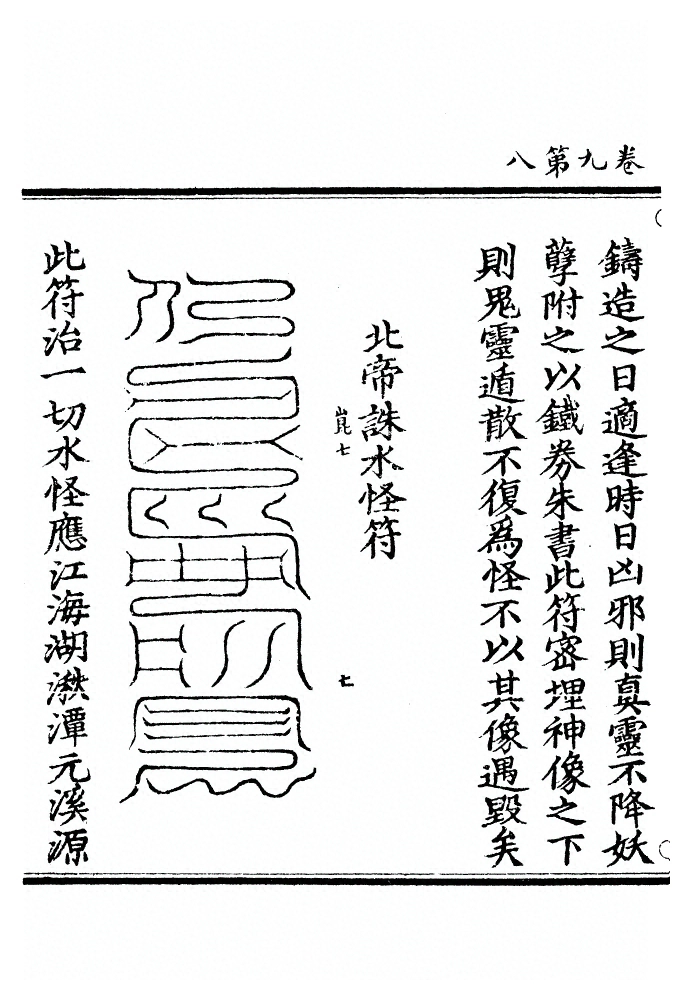 卷九第八
鑄造之日適逢時日凶邪則真靈不降妖
孽附之以鐵券朱書此符密埋神像之下
則鬼靈遁散不復為怪不以其像遇毀矣
北帝誅水怪符
崑七
七
此符治一切水怪應江海湖潭元溪源